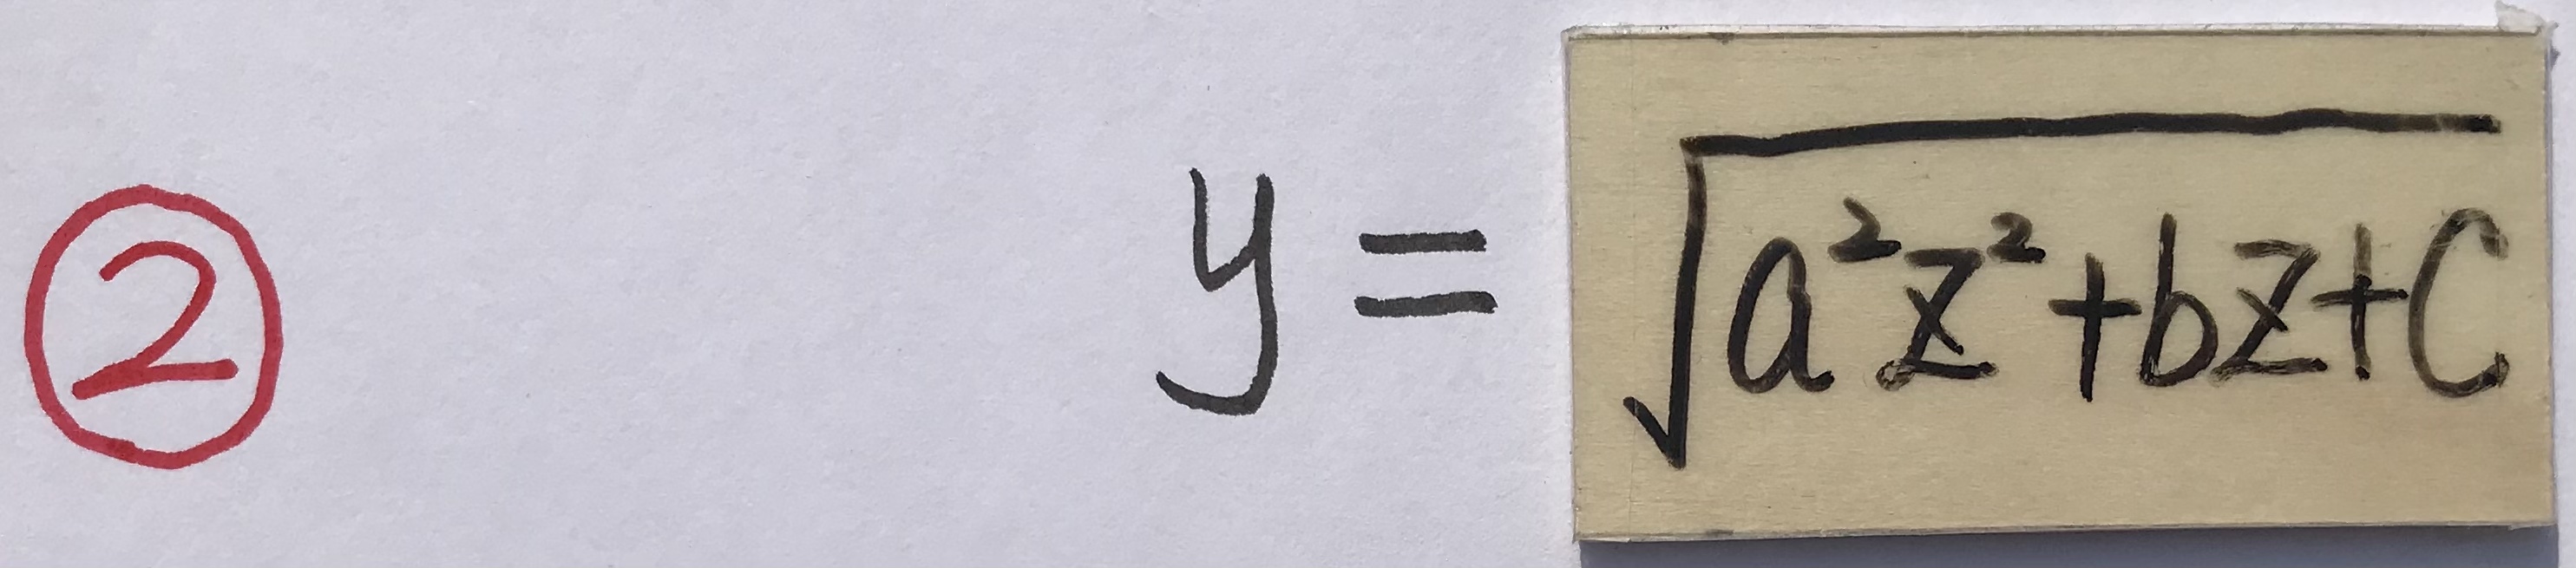 ② y = √(a²z² + bz + c)